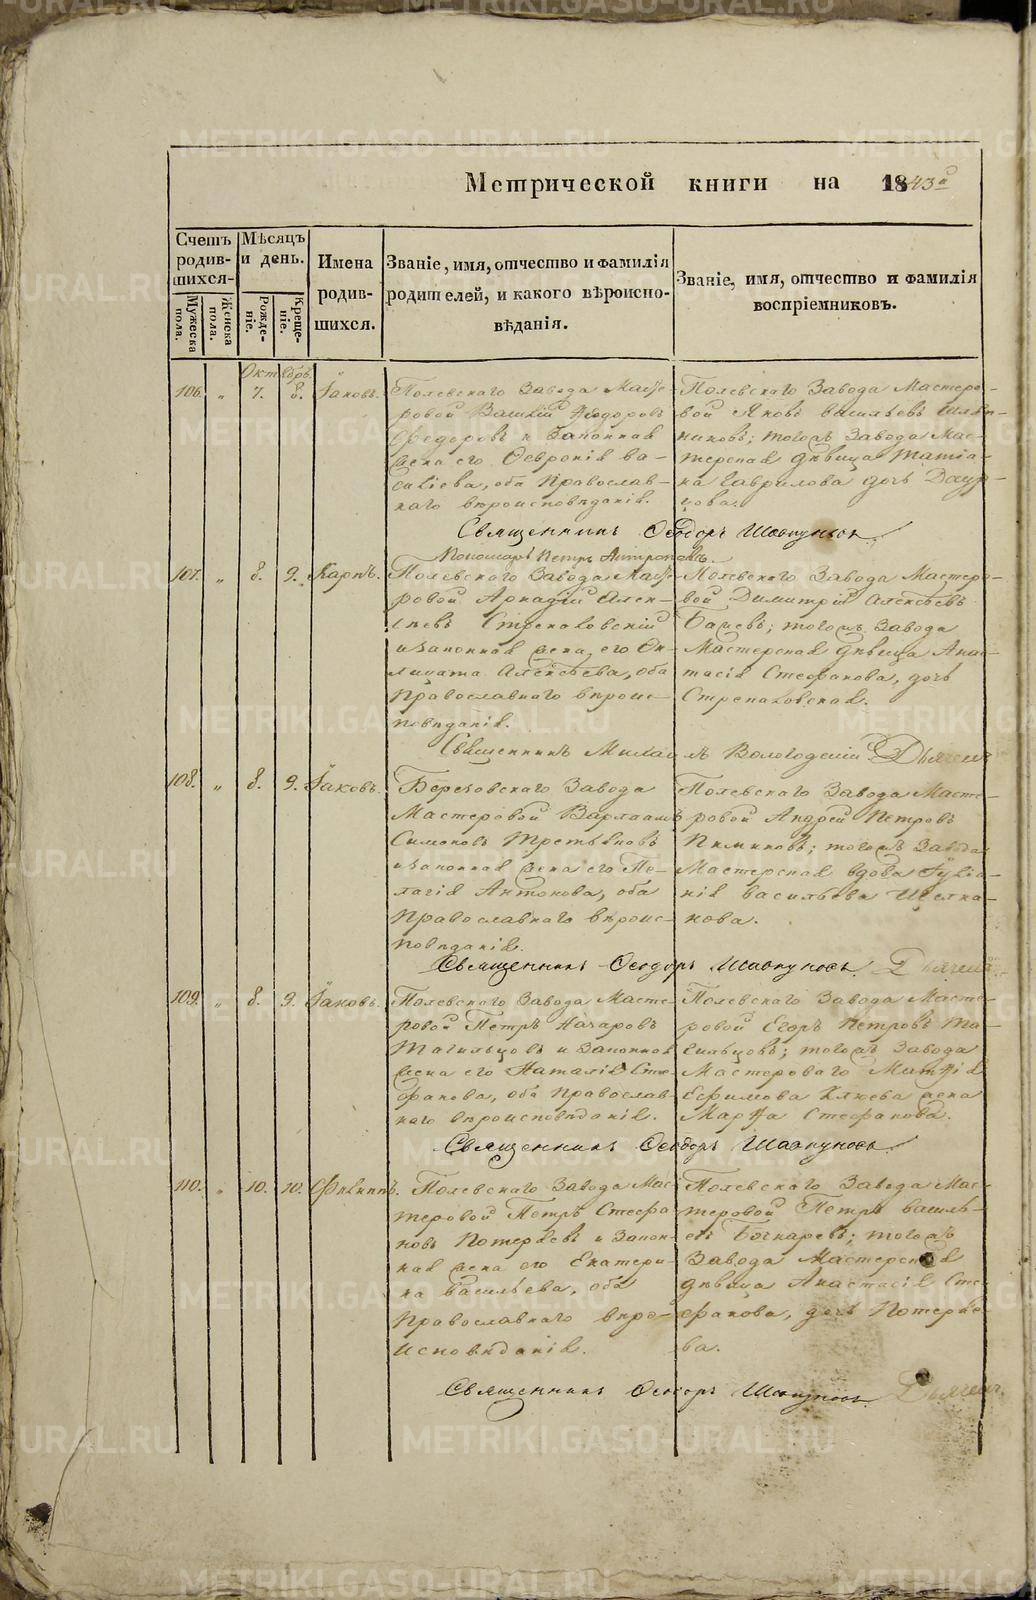 METRIKI.GASO-URAL.RU
Метрической книги на 1843й
Счетъ родив-шихся
Мужеска пола.
Женска пола.
Мѣсяцъ и день.
Рожде-ніе.
Креще-ніе.
Имена родив-шихся.
Званіе, имя, отчество и фамилія родителей, и какого вѣроиспо-вѣданія.
Званіе, имя, отчество и фамилія воспріемниковъ.
Октябрь
106. „ 7. 8. Іаковъ.
Полевскаго Завода Масте-
ровой Василій Ѳедоровъ
Ѳедоровъ и Законная
жена его Ѳевронія Ва-
силіева, оба Православ-
наго вѣроисповѣданія.
Полевскаго Завода Мастеро-
вой Яковъ Васильевъ
никовъ; тогожъ Завода Мас-
терская дѣвица Татіа-
на Гаврилова дочь
Священникъ Ѳеодоръ Шавкуновъ.
Пономарь Петръ Антроповъ.
107. „ 8. 9. Карпъ.
Полевскаго Завода Масте-
ровой Аркадій Алек-
ѣевъ
и Законная жена его Ек-
Алексѣева, оба
Православнаго вѣроис-
повѣданія.
Полевскаго Завода Мастеро-
вой Димитрій Алексѣевъ
тогожъ Завода
Мастерская дѣвица Анас-
тасія Стефанова, дочь
Священникъ Михаилъ Вологодскій Дьячекъ
108. „ 8. 9. Іаковъ.
Березовскаго Завода
Мастеровой Варлаамъ
Симоновъ Третьяковъ
и Законная жена его Пе-
лагія Антонова, оба
Православнаго вѣроис-
повѣданія.
Полевскаго Завода Масте-
ровой Андрей Петровъ
Пиминовъ; тогожъ Завода
Мастерская вдова Іуліа-
нія Васильева Щелка-
нова.
Священникъ Ѳеодоръ Шавкуновъ. Дьячекъ
109. „ 8. 9. Іаковъ.
Полевскаго Завода Масте-
ровой Петръ Назаровъ
Тагильцовъ и Законная
жена его Наталія Сте-
фанова, оба Православ-
наго вѣроисповѣданія.
Полевскаго Завода Масте-
ровой Егоръ Петровъ Та-
гильцовъ; тогожъ Завода
Мастероваго Матѳія
Ефимова Клюева жена
Марѳа Стефанова.
Священникъ Ѳеодоръ Шавкуновъ.
110. „ 10. 10. Филиппъ.
Полевскаго Завода Мас-
теровой Петръ Стефа-
новъ Потеряевъ и Закон-
ная жена его Екатери-
на Васильева, оба
Православнаго вѣро-
исповѣданія.
Полевскаго Завода Мас-
теровой Петръ Василь-
евъ Бочкаревъ; тогожъ
Завода Мастерская
дѣвица Анастасія Сте-
фанова, дочь Потеряе-
ва.
Священникъ Ѳеодоръ Шавкуновъ. Дьячекъ